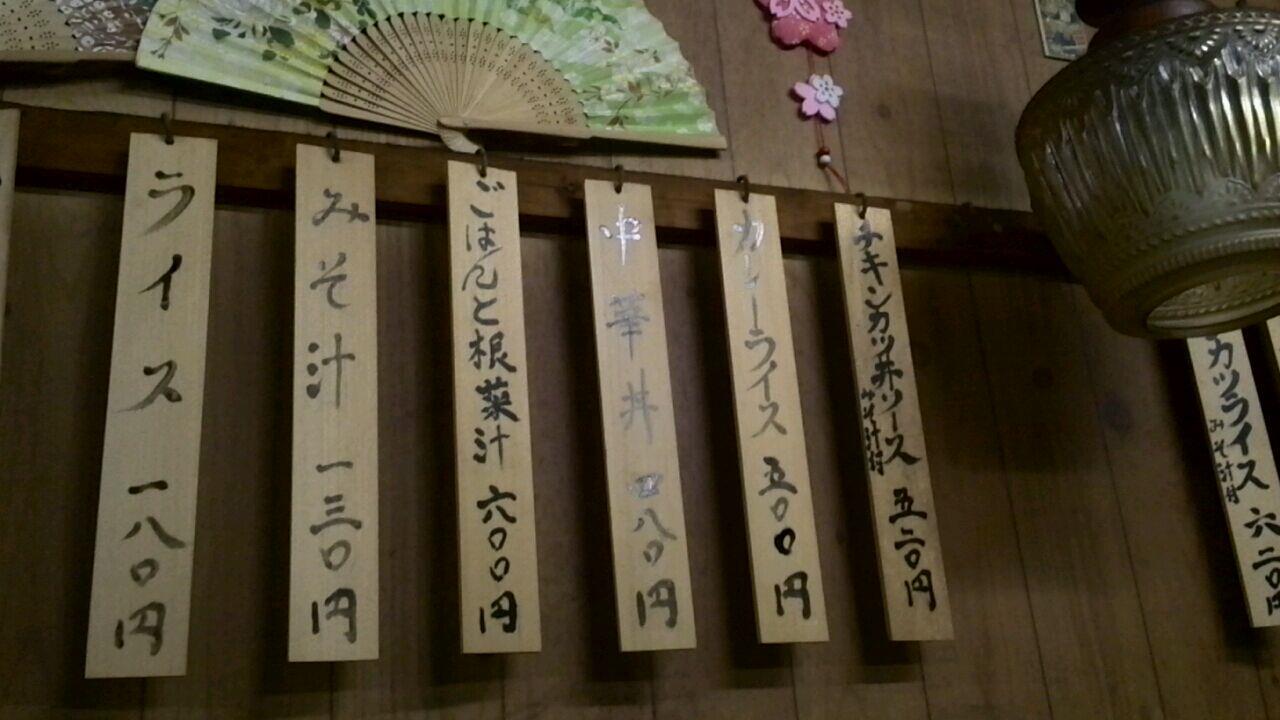 ライス 一八〇円
みそ汁 一三〇円
ごはんと根菜汁 六〇〇円
中華丼 四八〇円
カレーライス 五〇〇円
チキンカツ丼ソース 五二〇円
みそ汁付
カツライス 六二〇円
みそ汁付